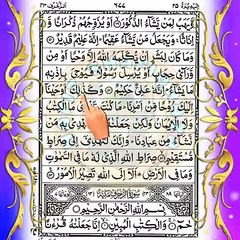 ٦٤٤ ٢٥
يَهَبُ لِمَنْ يَّشَآءُ الذُّكُوْرَ ۙ اَوْ يُزَوِّجُهُمْ ذُكْرَانًا وَّ
اِنَاثًا ۚ وَيَجْعَلُ مَنْ يَّشَآءُ عَقِيْمًا ؕ اِنَّهٗ عَلِيْمٌ قَدِيْرٌ
وَمَا كَانَ لِبَشَرٍ اَنْ يُّكَلِّمَهُ اللّٰهُ اِلَّا وَحْيًا اَوْ مِنْ
وَّرَآئِ حِجَابٍ اَوْ يُرْسِلَ رَسُوْلًا فَيُوْحِيَ بِاِذْنِهٖ
مَا يَشَآءُ ؕ اِنَّهٗ عَلِيٌّ حَكِيْمٌ وَكَذٰلِكَ اَوْحَيْنَآ
اِلَيْكَ رُوْحًا مِّنْ اَمْرِنَا ؕ مَا كُنْتَ تَدْرِيْ مَا الْكِتٰبُ
وَلَا الْاِيْمَانُ وَلٰكِنْ جَعَلْنٰهُ نُوْرًا نَّهْدِيْ بِهٖ مَنْ
نَّشَآءُ مِنْ عِبَادِنَا ؕ وَاِنَّكَ لَتَهْدِيْٓ اِلٰى صِرَاطٍ
مُّسْتَقِيْمٍ صِرَاطِ اللّٰهِ الَّذِيْ لَهٗ مَا فِي السَّمٰوٰتِ
وَمَا فِي الْاَرْضِ ؕ اَلَآ اِلَى اللّٰهِ تَصِيْرُ الْاُمُوْرُ
بِسْمِ اللّٰهِ الرَّحْمٰنِ الرَّحِيْمِ
حٰمٓ وَالْكِتٰبِ الْمُبِيْنِ اِنَّا جَعَلْنٰهُ قُرْءٰنًا